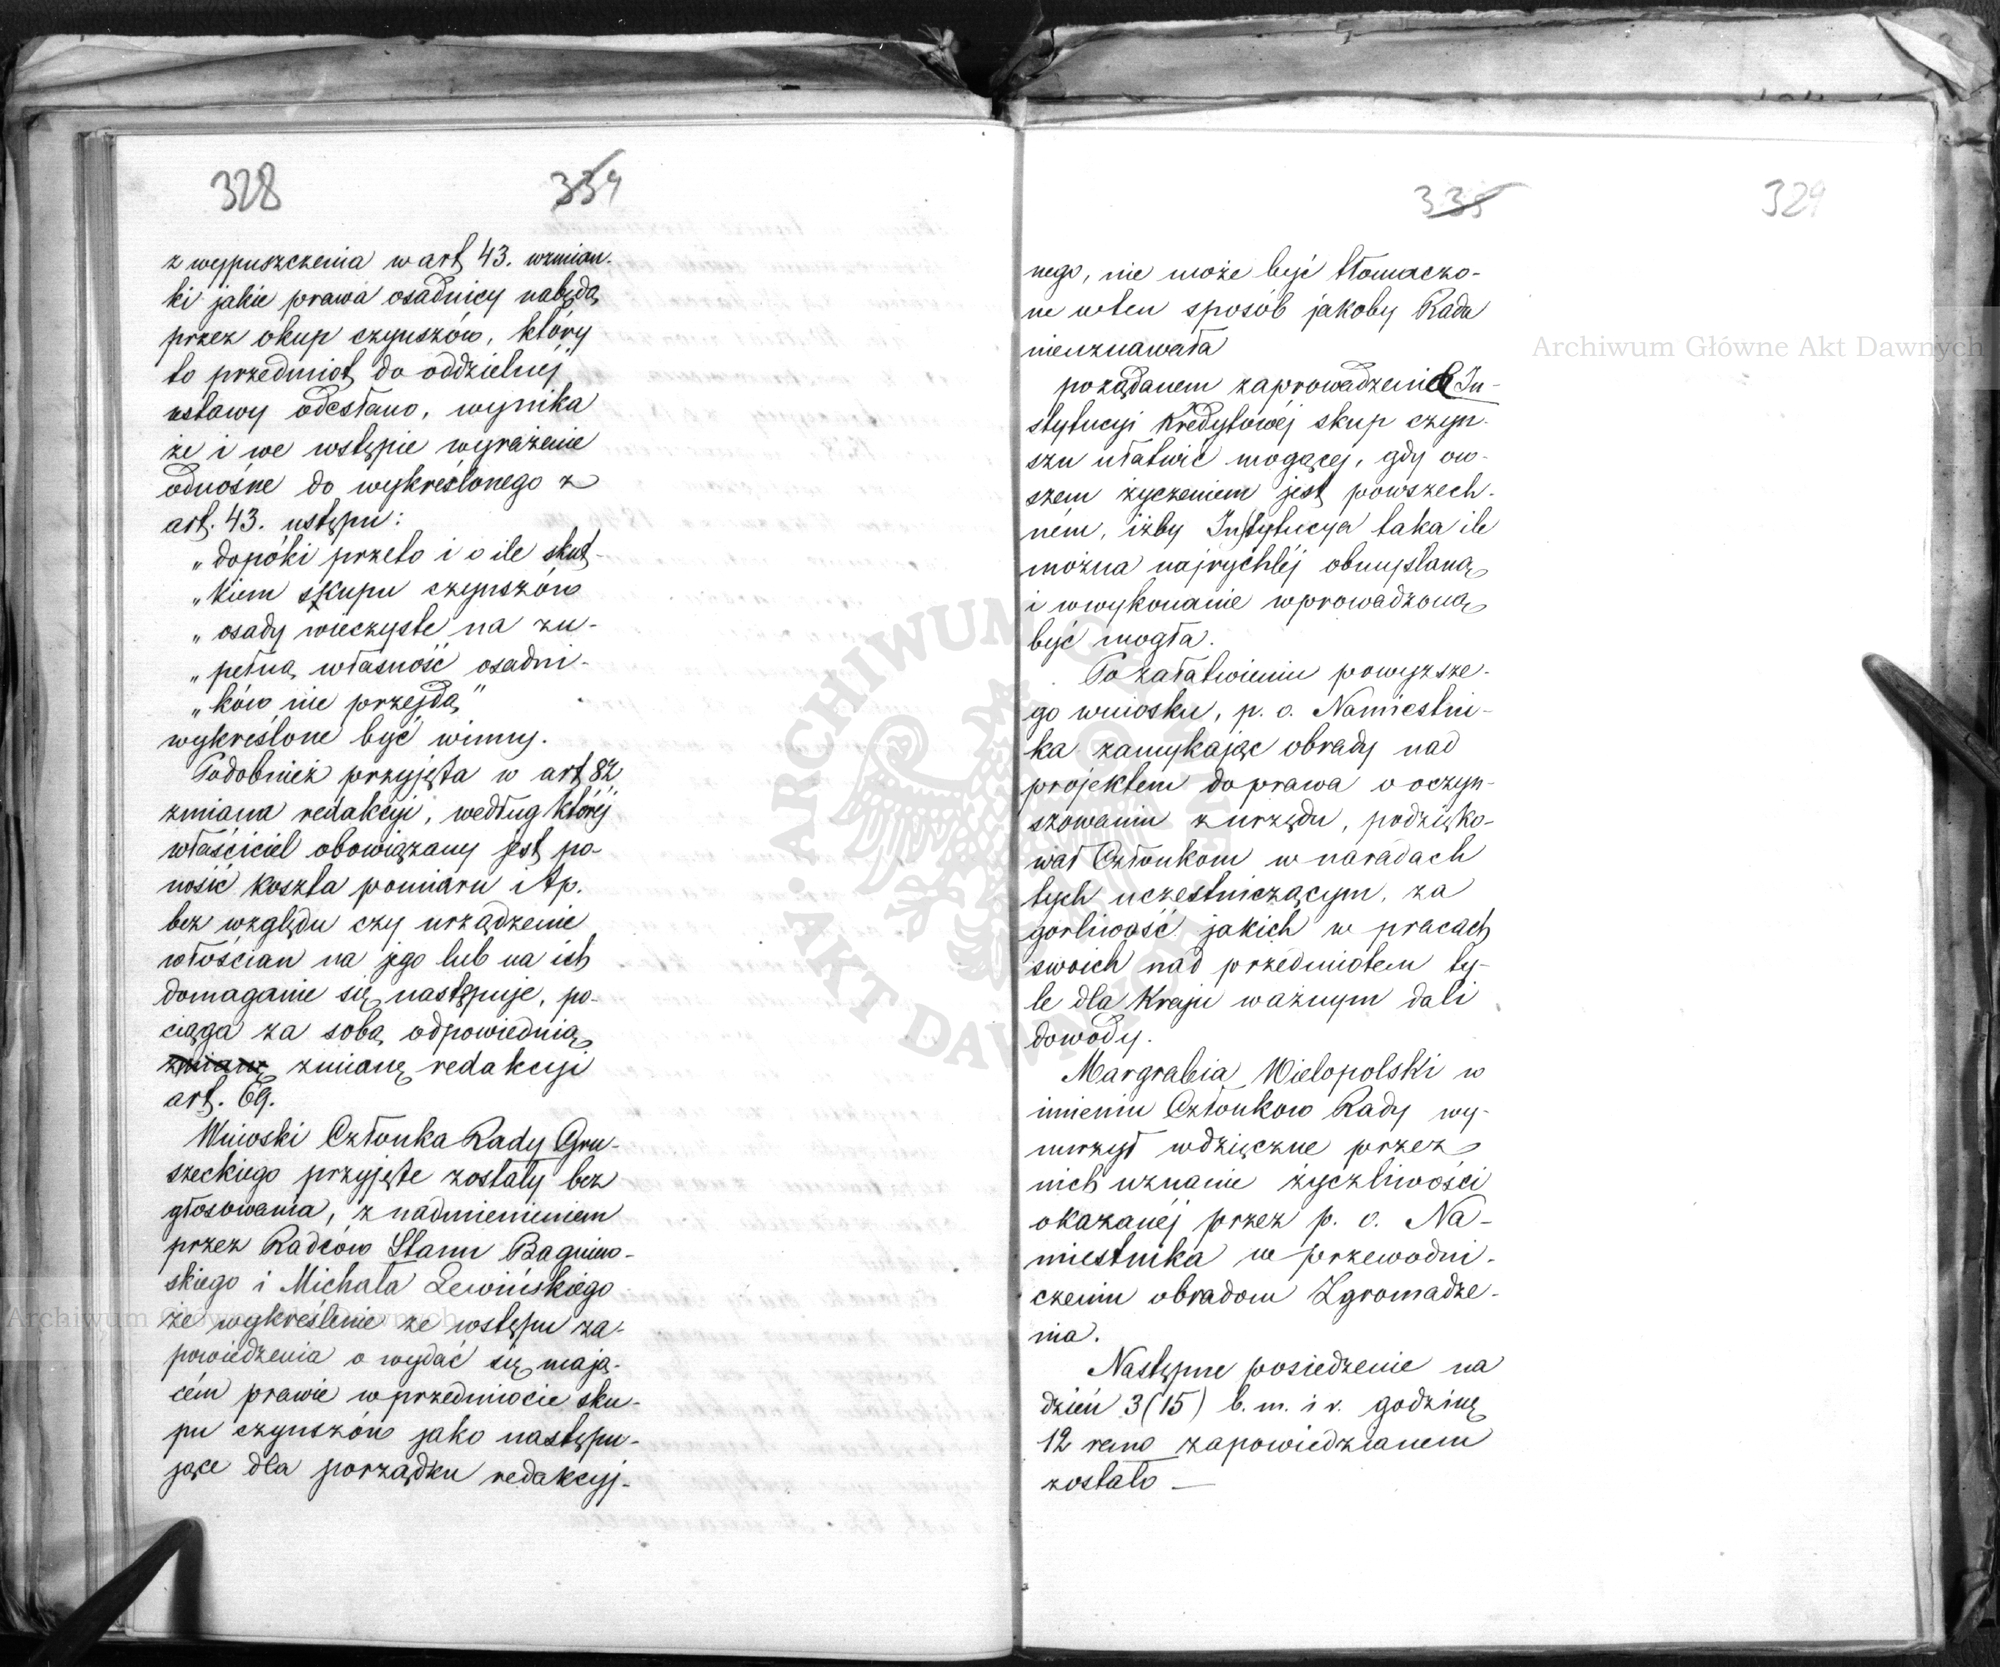 328 334
z wypuszczenia w art. 43. wzmian-
ki jakie prawa osadnicy nabędą
przez okup czynszów, który
to przedmiot do oddzielnéj
ustawy odesłano, wynika
że i we wstępie wyrażenie
odnośne do wykreślonego z
art. 43. ustępu:
„dopóki przeto i o ile skut-
„kiem skupu czynszów
„osady wieczyste na zu-
„pełną własność osadni-
„ków nie przejdą"
wykreślone być winny.
Podobnież przyjęta w art 82
zmiana redakcyi, według któréj
właściciel obowiązany jest po-
nosić koszta pomiaru i t.p.
bez względu czy urządzenie
włościan na jego lub na ich
domaganie się następuje, po-
ciąga za sobą odpowiednią
zmianę zmianę redakcyi
art. 69.
Wnioski Członka Rady Gru-
szeckiego przyjęte zostały bez
głosowania, z nadmienieniem
przez Radców Stanu Bagniew-
skiego i Michała Lewińskiego
że wykreślenie ze wstępu za-
powiedzenia o wydać się mają-
cém prawie w przedmiocie sku-
pu czynszów jako następu-
jące dla porządku redakcyj-
335 329
nego, nie może być tłomaczo-
ne w ten sposób jakoby Rada
nieuznawała
pożądanem zaprowadzenie In-
stytucyi Kredytowéj skup czyn-
szu ułatwić mogącej, gdy ow-
szem życzeniem jest powszech-
ném, iżby Instytucya taka ile
można najrychléj obmyślaną
i w wykonanie wprowadzoną
być mogła.
Po załatwieniu powyższe-
go wniosku, p. o. Namiestni-
ka zamykając obrady nad
projektem do prawa o oczyn-
szowaniu z urzędu, podzięko-
wał Członkom w naradach
tych uczestniczącym, za
gorliwość jakich w pracach
swoich nad przedmiotem ty-
le dla Kraju ważnym dali
dowody.
Margrabia Wielopolski w
imieniu Członków Rady wy-
nurzył wdzięczne przez
nich uznanie życzliwości
okazanéj przez p. o. Na-
miestnika w przewodni-
czeniu obradom Zgromadze-
nia.
Następne posiedzenie na
dzień 3 (15) b. m. i r. godzinę
12 rano zapowiedzianem
zostało —
Archiwum Główne Akt Dawnych
Archiwum Główne Akt Dawnych
ARCHIWUM GŁÓWNE AKT DAWNYCH